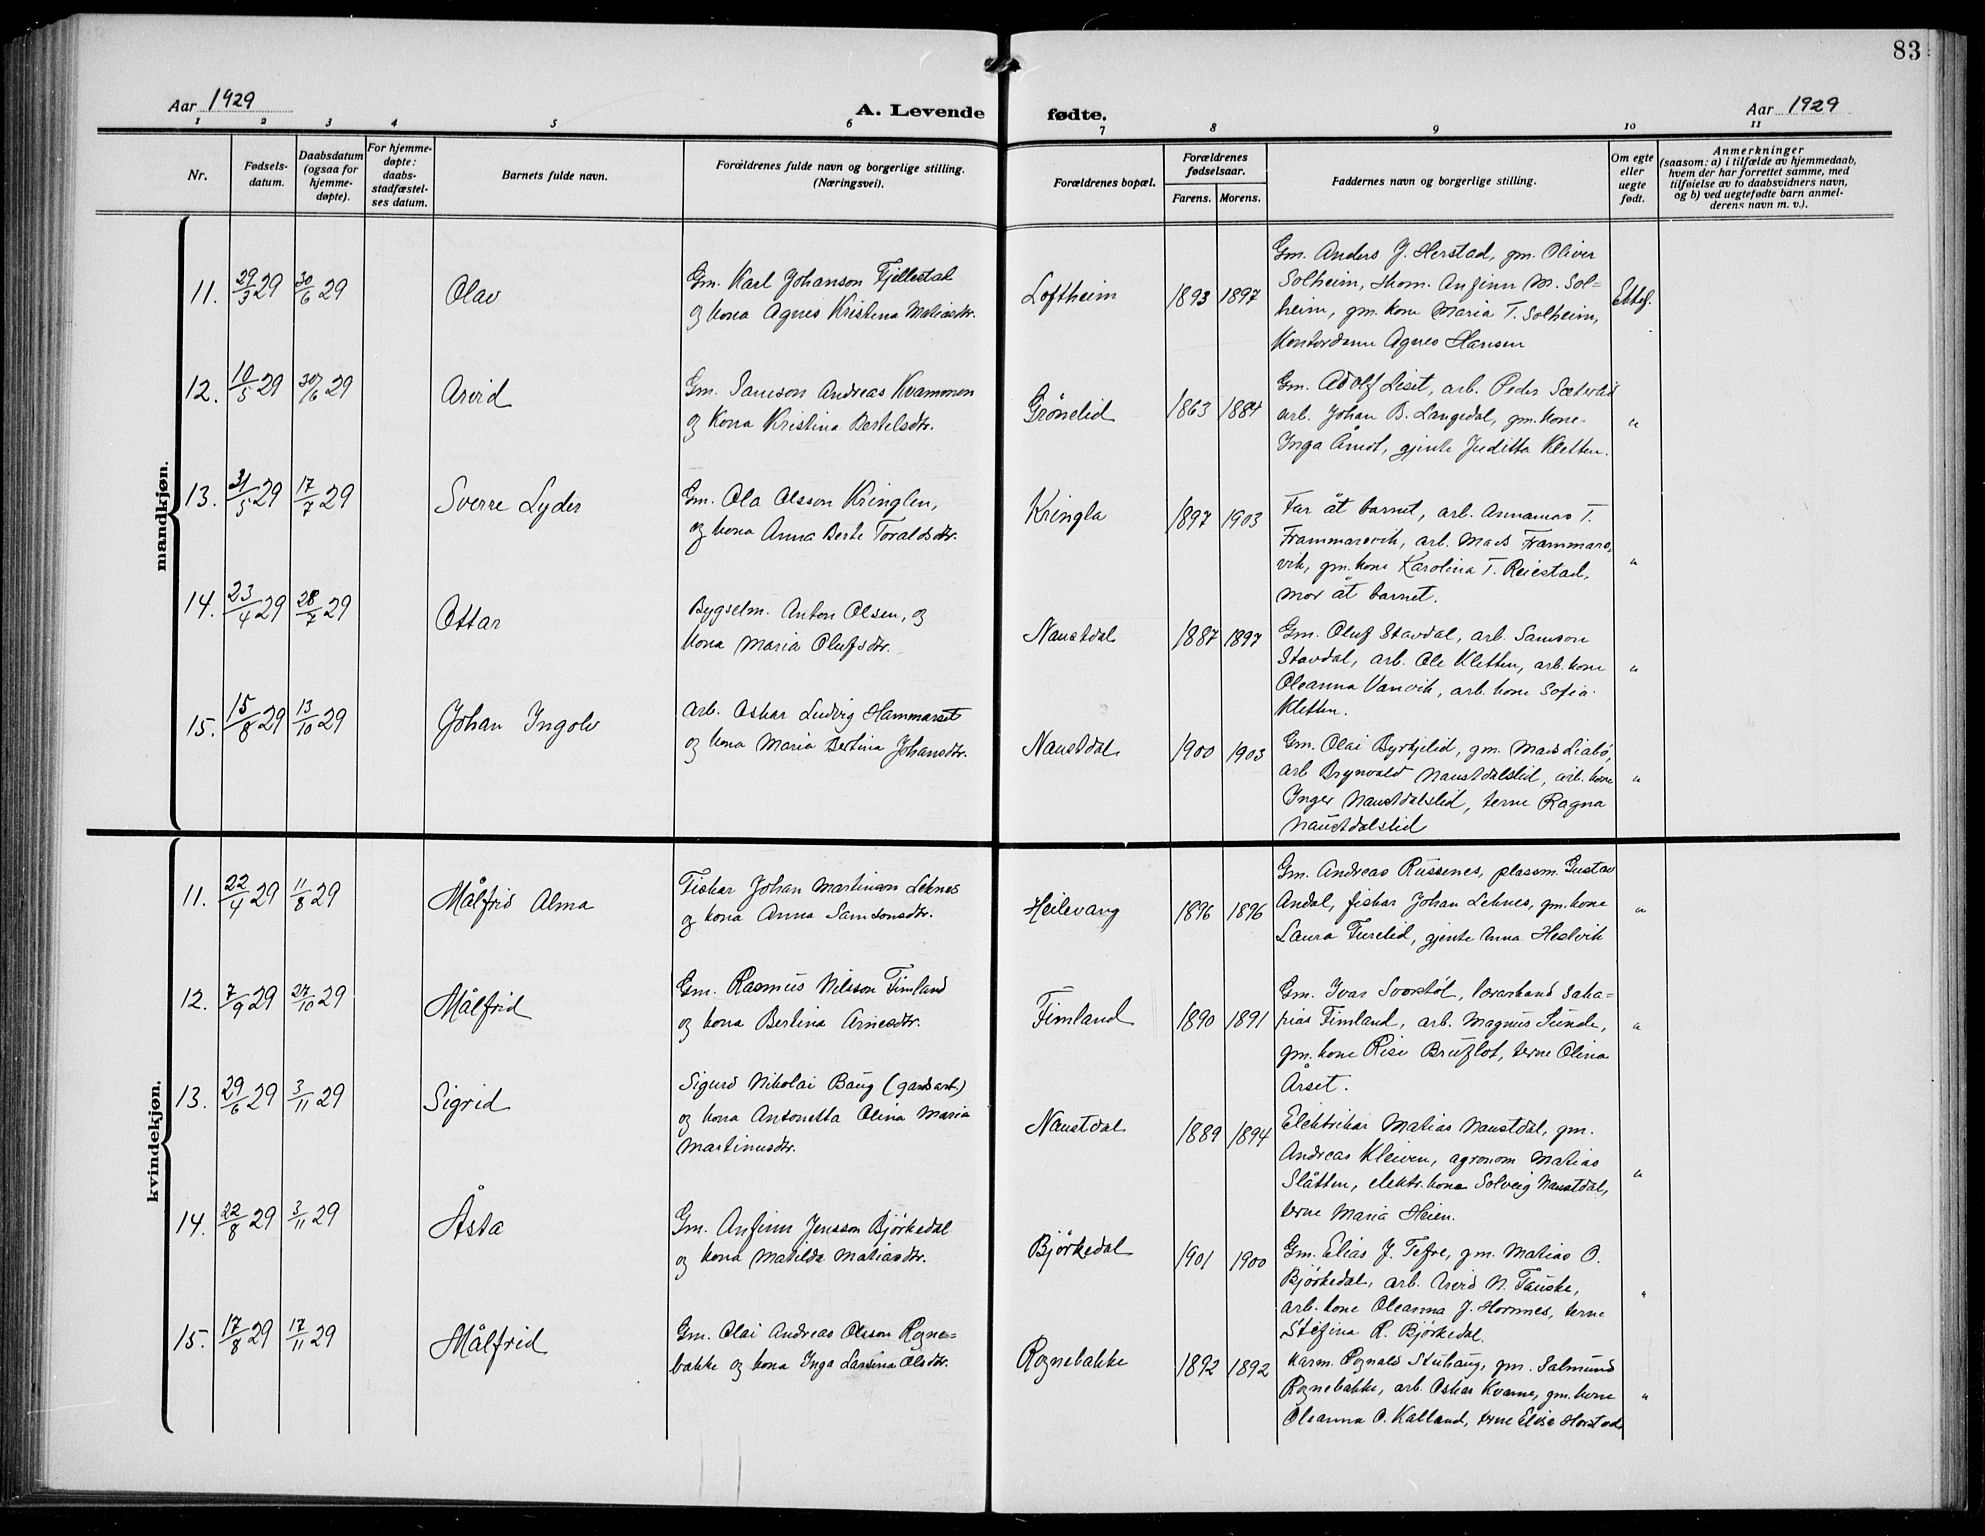 83
Aar 1929
A. Levende fødte.
Aar 1929
1 2 3 4 5 6 7 8 9 10 11
Nr.
Fødsels-
datum.
Daabsdatum
(ogsaa for
hjemme-
døpte).
For hjemme-
døpte:
daabs-
stadfæstel-
ses datum.
Barnets fulde navn.
Forældrenes fulde navn og borgerlige stilling.
(Næringsvei).
Forældrenes bopæl.
Forældrenes
fødselsaar.
Farens. Morens.
Faddernes navn og borgerlige stilling.
Om egte
eller
uegte
født.
Anmerkninger
(saasom: a) i tilfælde av hjemmedaab,
hvem der har forrettet samme, med
tilføielse av to daabsvidners navn,
og b) ved uegtefødte barn anmel-
derens navn m. v.).
mandkjøn.
11. 29/3 29 30/6 29 Olav
Gm. Karl Johanson Fjellestad
og kona Agnes Kristina Matiasdtr.
Loftheim 1893 1897
Gm. Anders J. Herstad, gm. Oliver
Solheim, Anfinn M. Sol=
heim, gm. kone Maria T. Solheim,
Kontordame Agnes Hansen
Ektef.
12. 10/5 29 30/6 29 Arvid
Gm. Samson Andreas Kvammen
og kona Kristina Bertelsdtr.
Grönelid 1863 1884
Gm. Adolf Liset, arb. Peder Sæterlid
arb. Johan B. Langedal, gm. kone
Inga Åmot, gjente Juditta Kletten.
"
13. 31/5 29 17/7 29 Sverre Lyder
Gm. Ola Olsson Kringlen,
og kona Anna Berte Toraldsdtr.
Kringla 1897 1903
Far åt barnet, arb. Annanias T.
Frammarsvik, arb. Mads Frammars,
vik, gm. kone Karolina T. Reiestad,
mor åt barnet.
"
14. 23/4 29 28/7 29 Ottar
Bygselm. Anton Olsen, og
kona Maria Olufsdtr.
Naustdal 1887 1897
Gm. Oluf Stavdal, arb. Samson
Stavdal, arb. Ole Kletten, arb. kone
Oleanna Vanvik, arb. kone Sofia
Kletten.
"
15. 15/8 29 13/10 29 Johan Ingolv
Arb. Oskar Ludvig Hammarset
og kona Maria Bertina Johansdtr.
Naustdal 1900 1903
Gm. Olai Byrkjelid, gm. Mads Liabö,
arb Brynvald Naustdalslid, arb. kone
Inger Naustdalslid, terne Ragna
Naustdalslid
"
kvindekjøn.
11. 22/4 29 11/8 29 Målfrid Alma
Fiskar Johan Martinson Leknes
og kona Anna Samsonsdtr.
Heilevang 1896 1896
Gm. Andreas Russenes, plassm. Gustav
Andal, fiskar Johan Leknes, gm. kone
Laura Furelid, gjente Anna Heslvik
"
12. 7/9 29 27/10 29 Målfrid
Gm. Rasmus Nilsson Fimland
og kona Bertina Arnesdtr.
Fimland 1890 1891
Gm. Ivar Svorstöl, Saka=
rias Fimland, arb. Magnus Sunde,
gm. kone Risi Bruflot, terne Olina
Årset.
"
13. 29/6 29 3/11 29 Sigrid
Sigurd Nikolai Baug (gardsarb.)
og kona Antonetta Olina Maria
Martinusdtr.
Naustdal 1889 1894
Elektrikar Matias Naustdal, gm.
Andreas Kleiven, agronom Matias
Slåtten, elektr. kone Solveig Naustdal,
terne Maria Heien.
"
14. 22/8 29 3/11 29 Åsta
Gm. Anfinn Jensson Björkedal
og kona Matilda Matiasdtr.
Björkedal 1901 1900
Gm. Elias J. Tefre, gm. Matias O.
Björkedal, arb. Arvid N. Fauske,
arb. kone Oleanna J. Hornnes, terne
Stefina R. Björkedal.
"
15. 17/8 29 17/11 29 Målfrid
Gm. Olai Andreas Olsson Rogne=
bakke og kona Inga Larsina Olsdtr.
Rognebakke 1892 1892
Karm. Rognald Stuhaug, gm. Salmund
Rognebakke, arb. Oskar Kvame, gm. kone
Oleanna O. Kalland, terne Elise Horstad
"